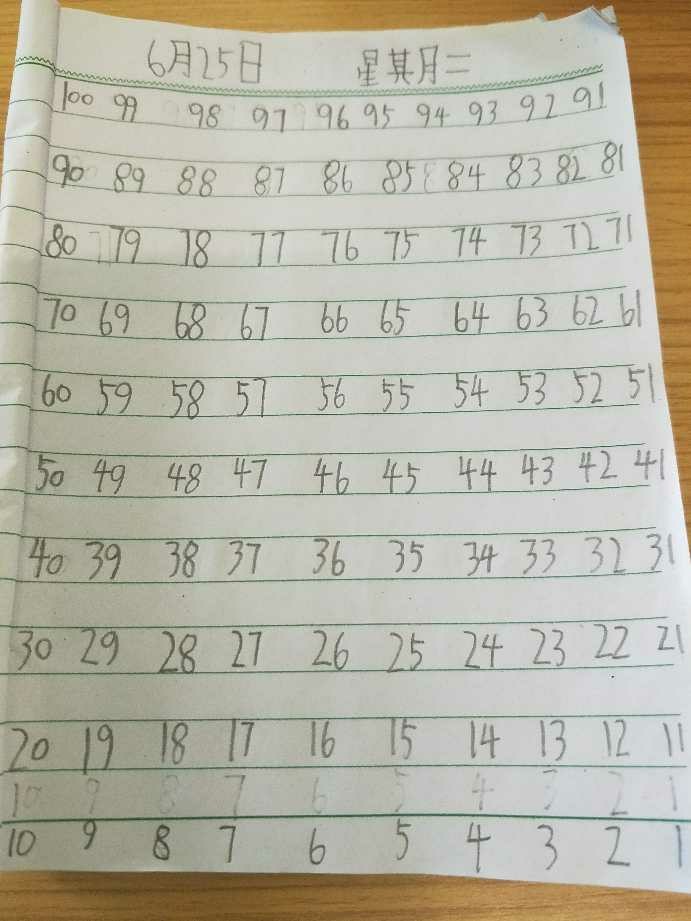 6月25日 星其月二
100 99 98 97 96 95 94 93 92 91
90 89 88 87 86 85 84 83 82 81
80 79 78 77 76 75 74 73 72 71
70 69 68 67 66 65 64 63 62 61
60 59 58 57 56 55 54 53 52 51
50 49 48 47 46 45 44 43 42 41
40 39 38 37 36 35 34 33 32 31
30 29 28 27 26 25 24 23 22 21
20 19 18 17 16 15 14 13 12 11
10 9 8 7 6 5 4 3 2 1
10 9 8 7 6 5 4 3 2 1